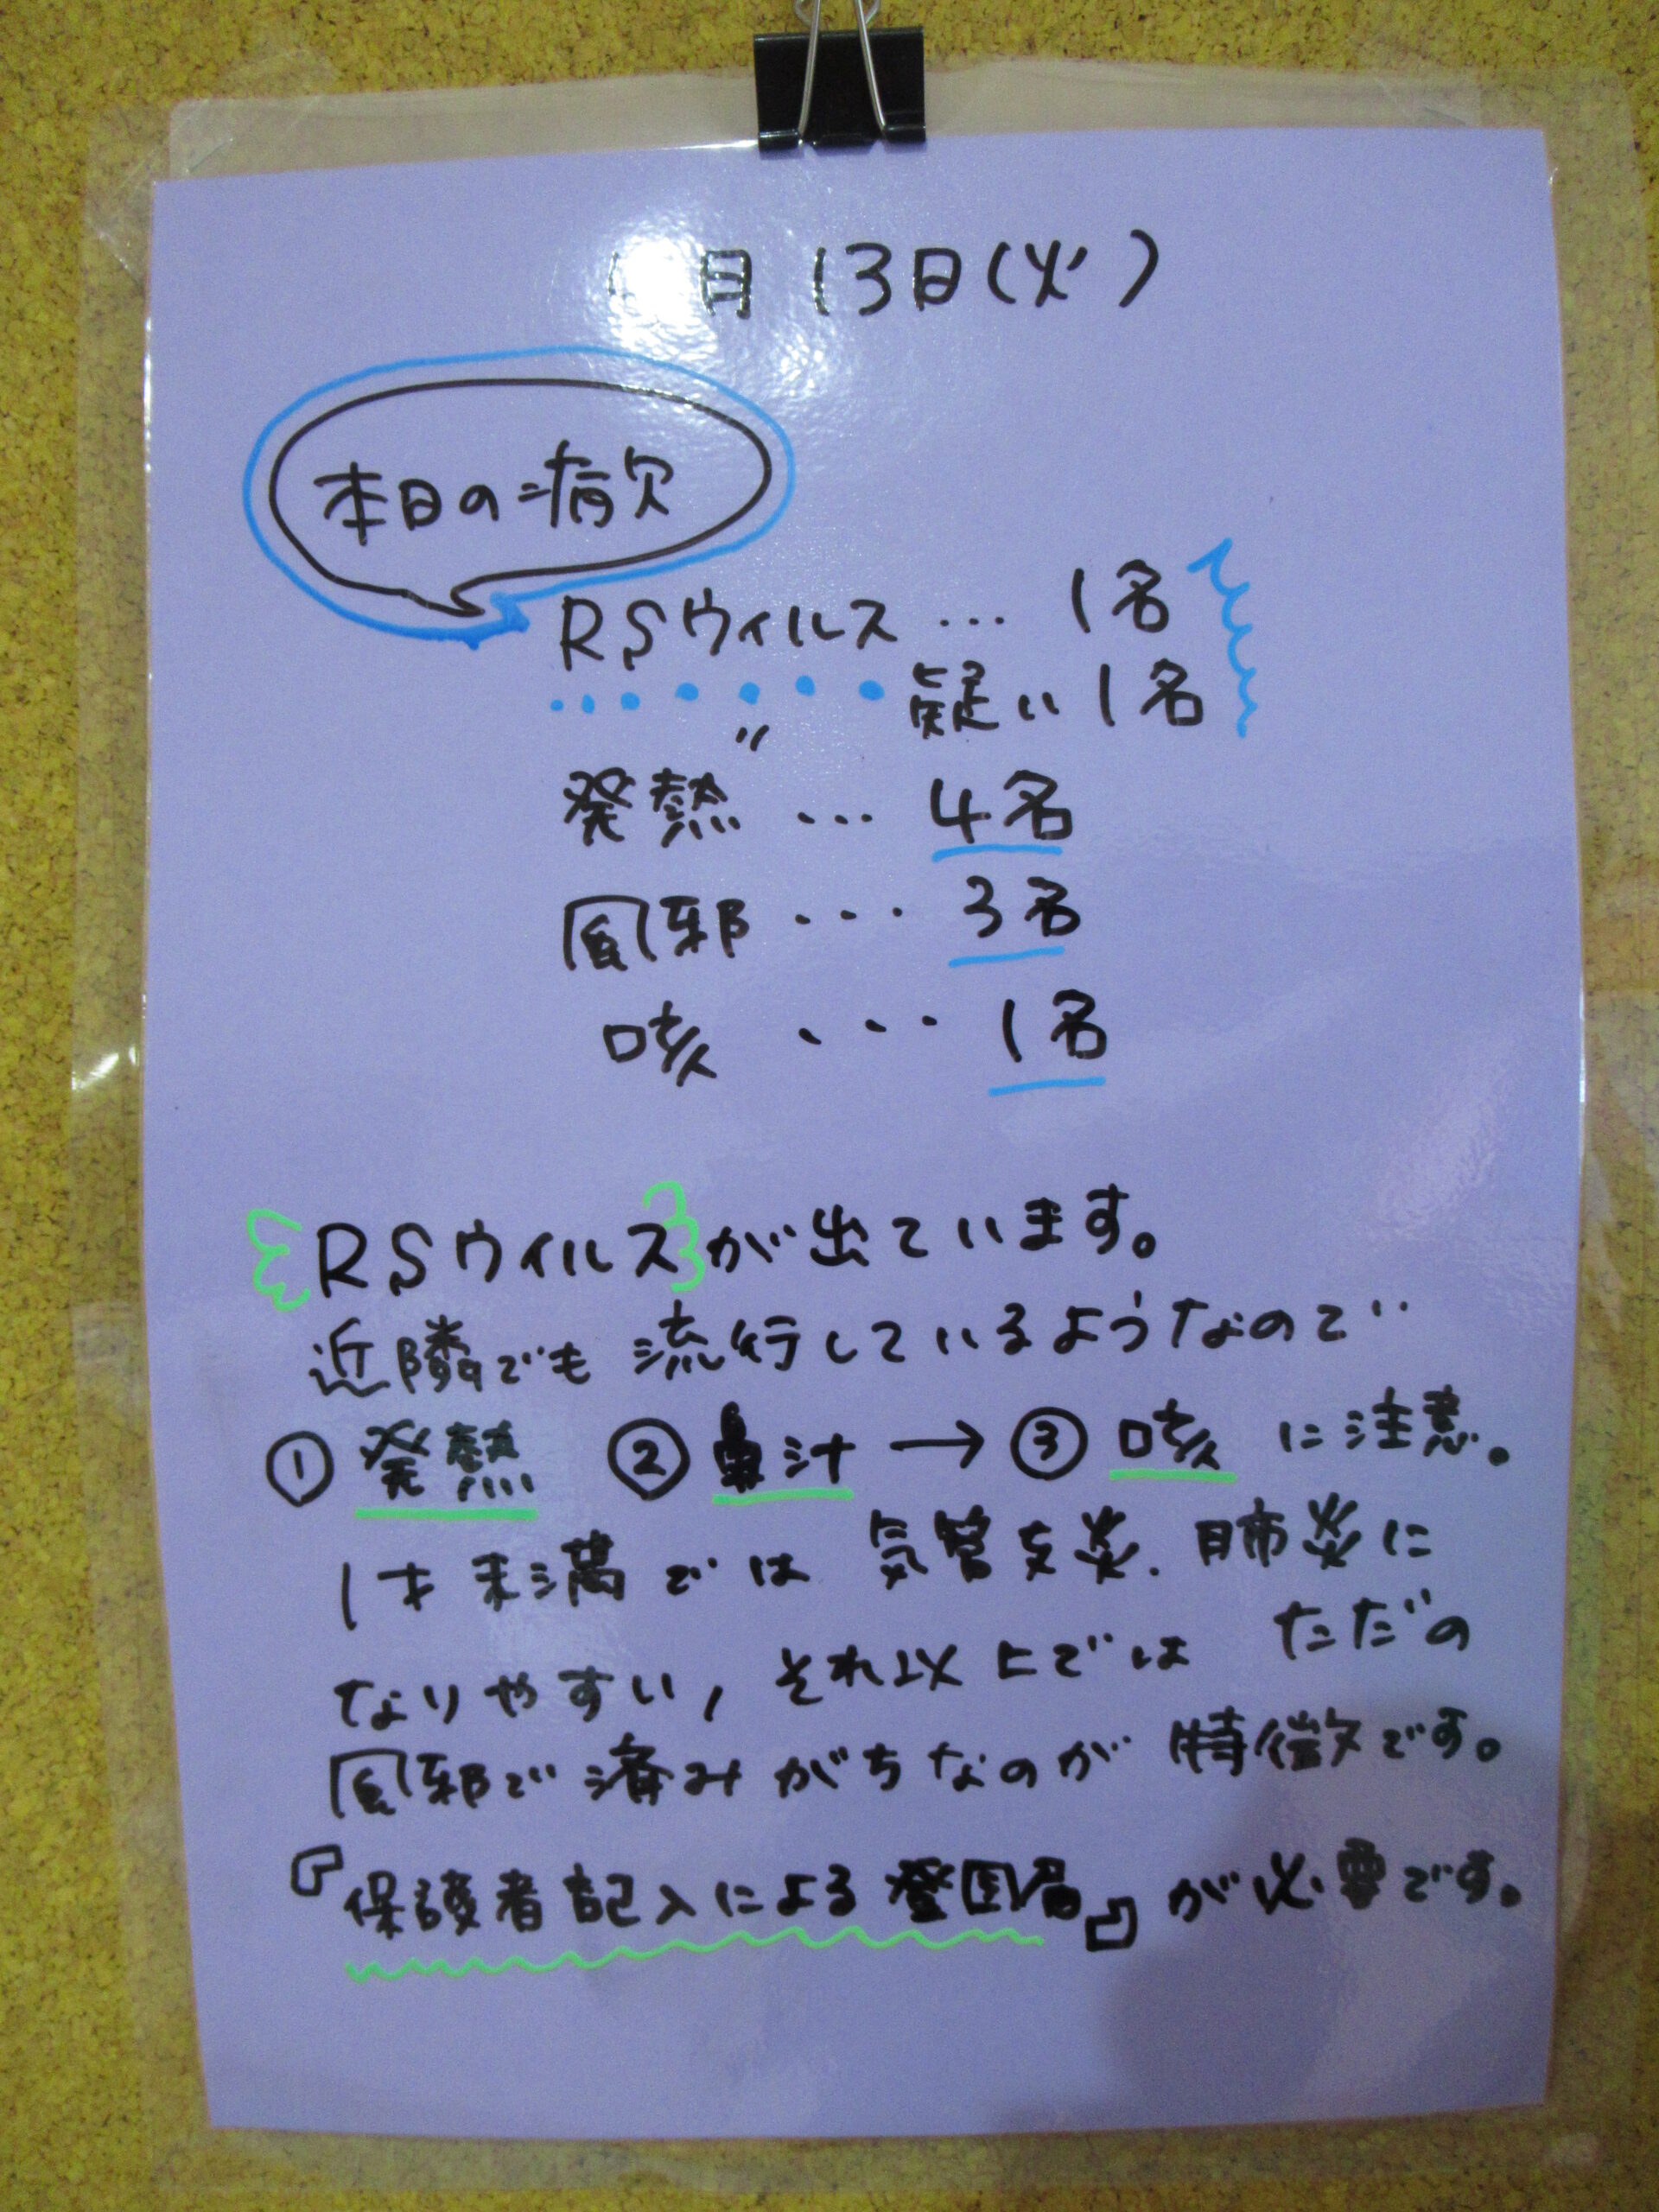 月13日(火)
本日の病欠
RSウィルス … 1名
〃 疑い 1名
発熱 … 4名
風邪 … 3名
咳 … 1名
RSウィルスが出ています。
近隣でも流行しているようなので
①発熱 ②鼻汁→③咳 に注意。
1才未満では気管支炎.肺炎に
なりやすい,それ以上ではただの
風邪で済みがちなのが特徴です。
『保護者記入による登園届』が必要です。